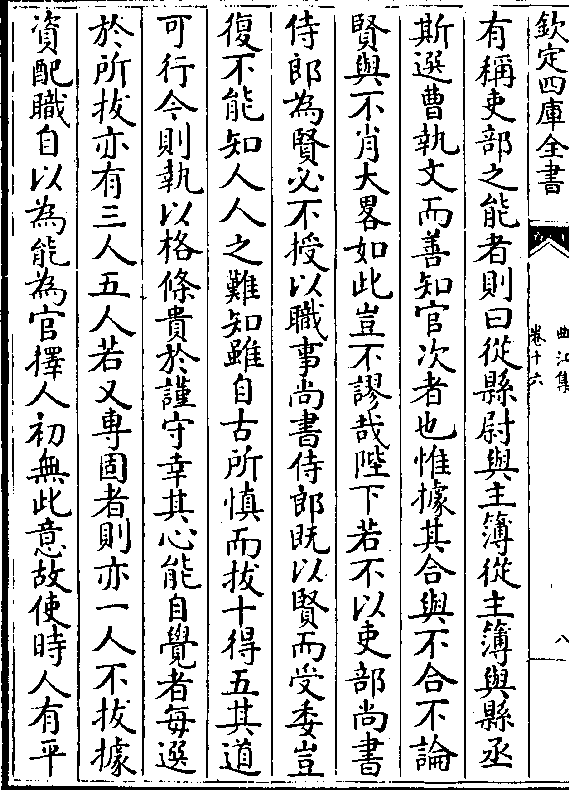 欽定四庫全書
曲江集
卷十六
八
有稱吏部之能者則曰從縣尉與主簿從主簿與縣丞
斯選曹執文而善知官次者也惟據其合與不合不論
賢與不肖大畧如此豈不謬哉陛下若不以吏部尚書
侍郎為賢必不授以職事尚書侍郎既以賢而受委豈
復不能知人人之難知雖自古所慎而拔十得五其道
可行今則執以格條貴於謹守幸其心能自覺者每選
於所拔亦有三人五人若又專固者則亦一人不拔據
資配職自以為能為官擇人初無此意故使時人有平